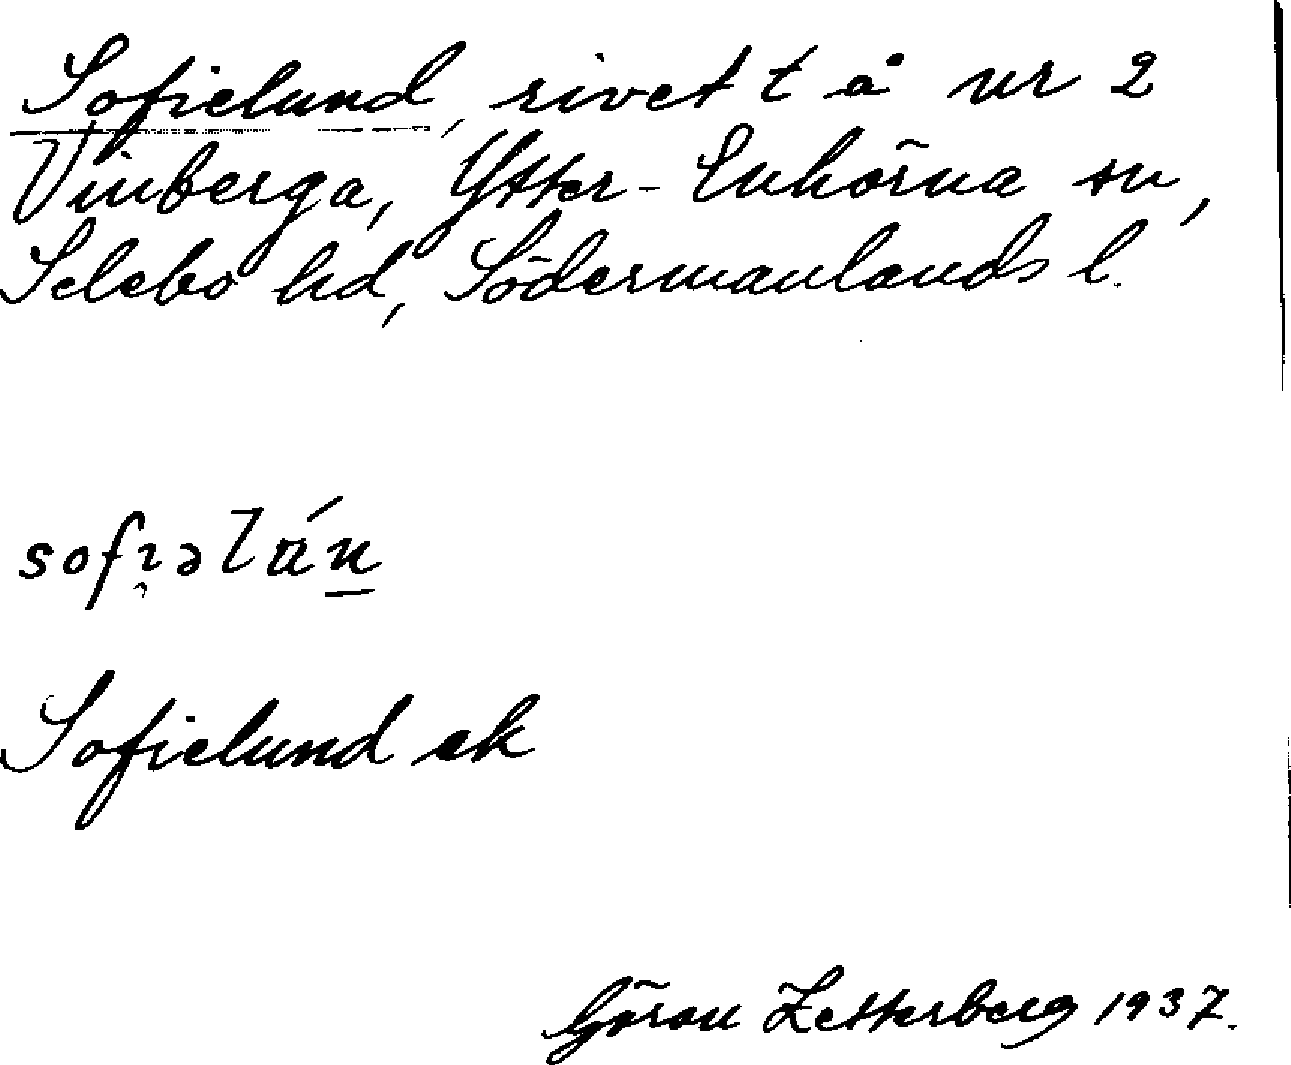 Sofielund, rivet t å nr 2
Vinberga, Ytter-Enhörna sn,
Selebo hd, Södermanlands l.
sofı̯əlún̲
Sofielund ek
Göran Zetterberg 1937.